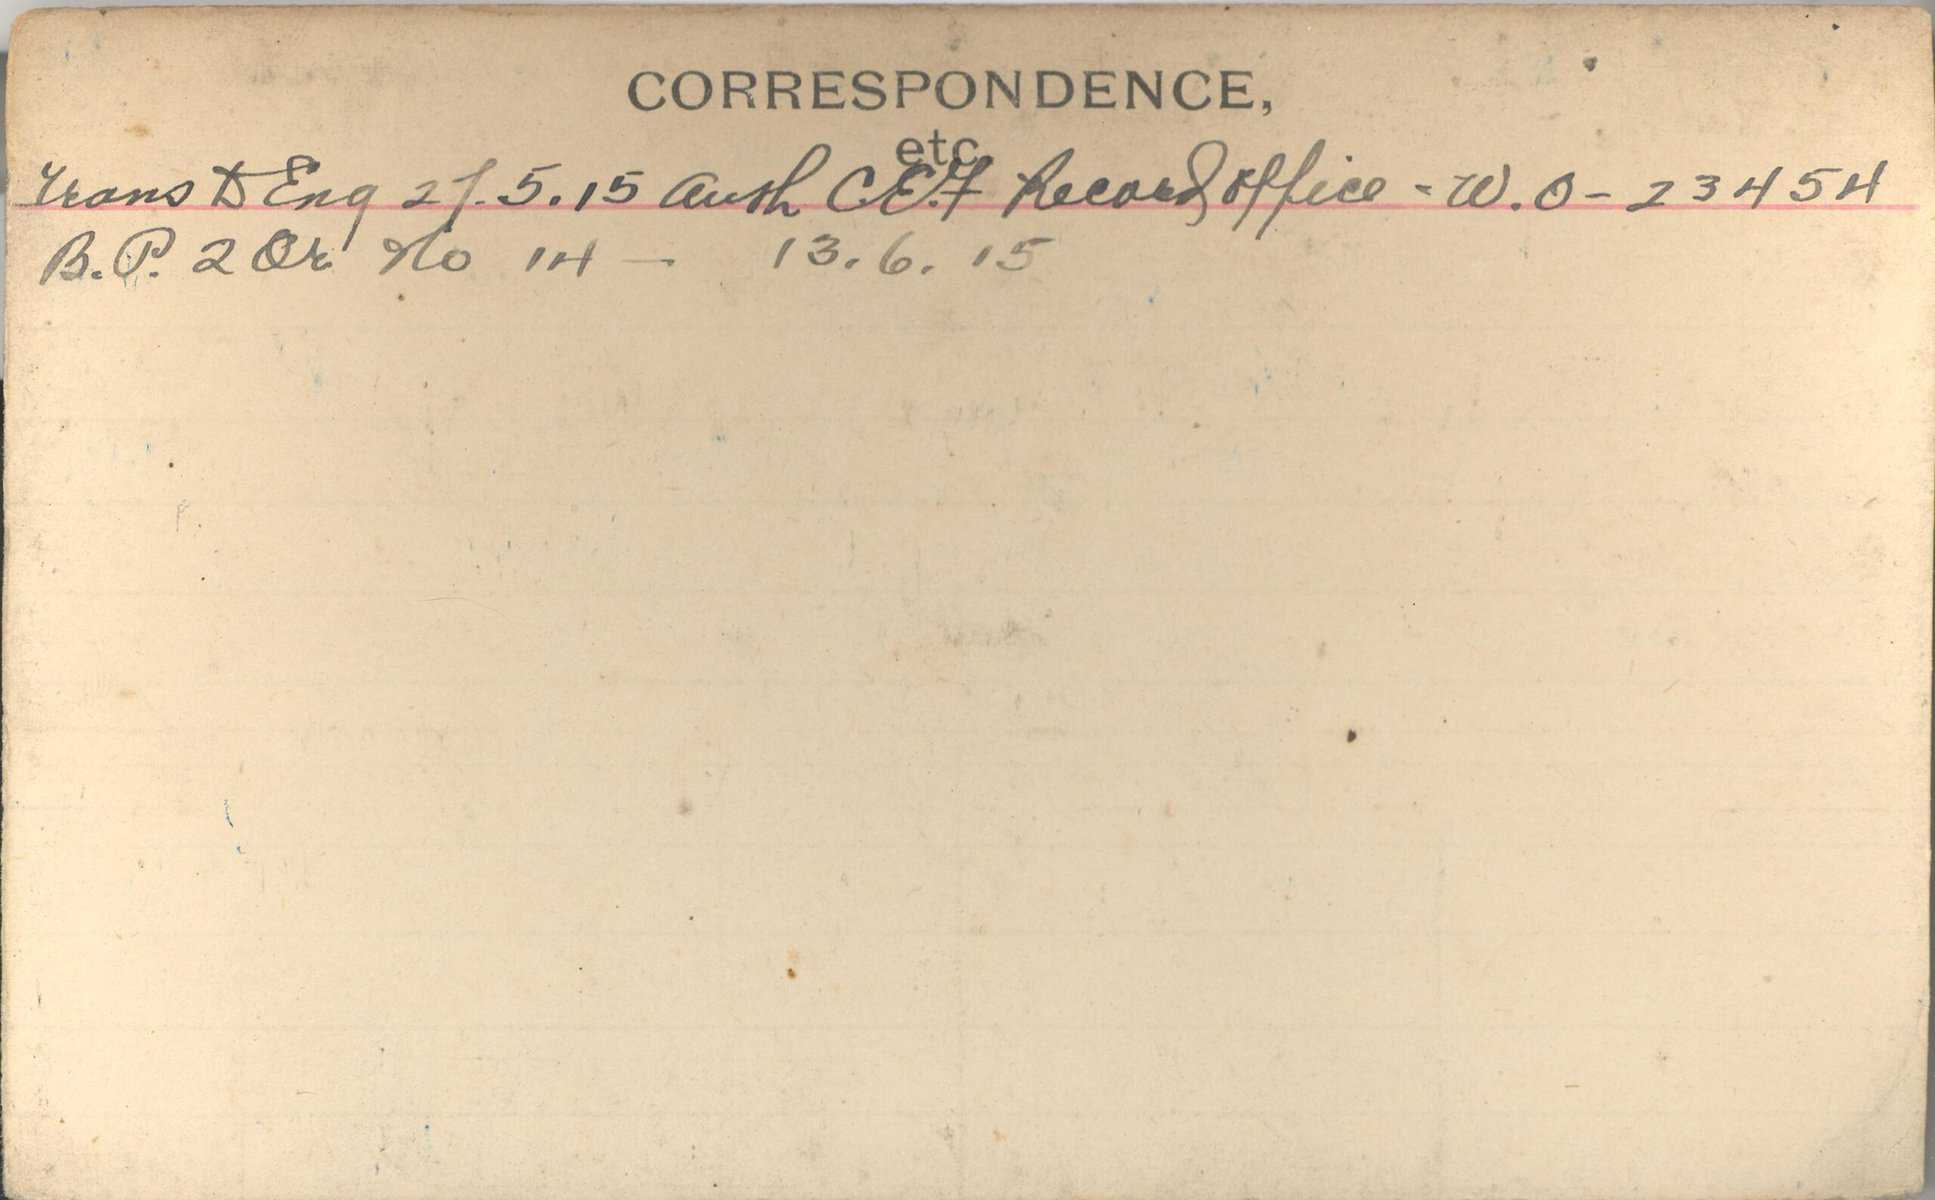 CORRESPONDENCE,
etc.
Trans to Eng 27.5.15 Auth C.E.F Record Office - W.O - 23454
B.P. 2 Or No 14 - 13.6.15